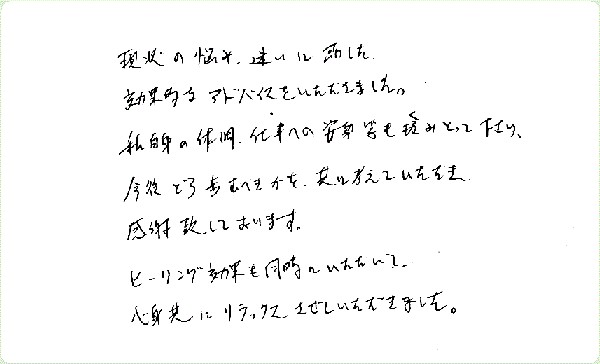 現状の悩み、迷いに即した
効果的なアドバイスをいただきました。
私自身の体調、仕事への姿勢等も汲みとって下さり、
今後どう歩むべきかを、共に考えていただき
感謝致しております。
ヒーリング効果も同時にいただいて、
心身共にリラックスさせていただきました。